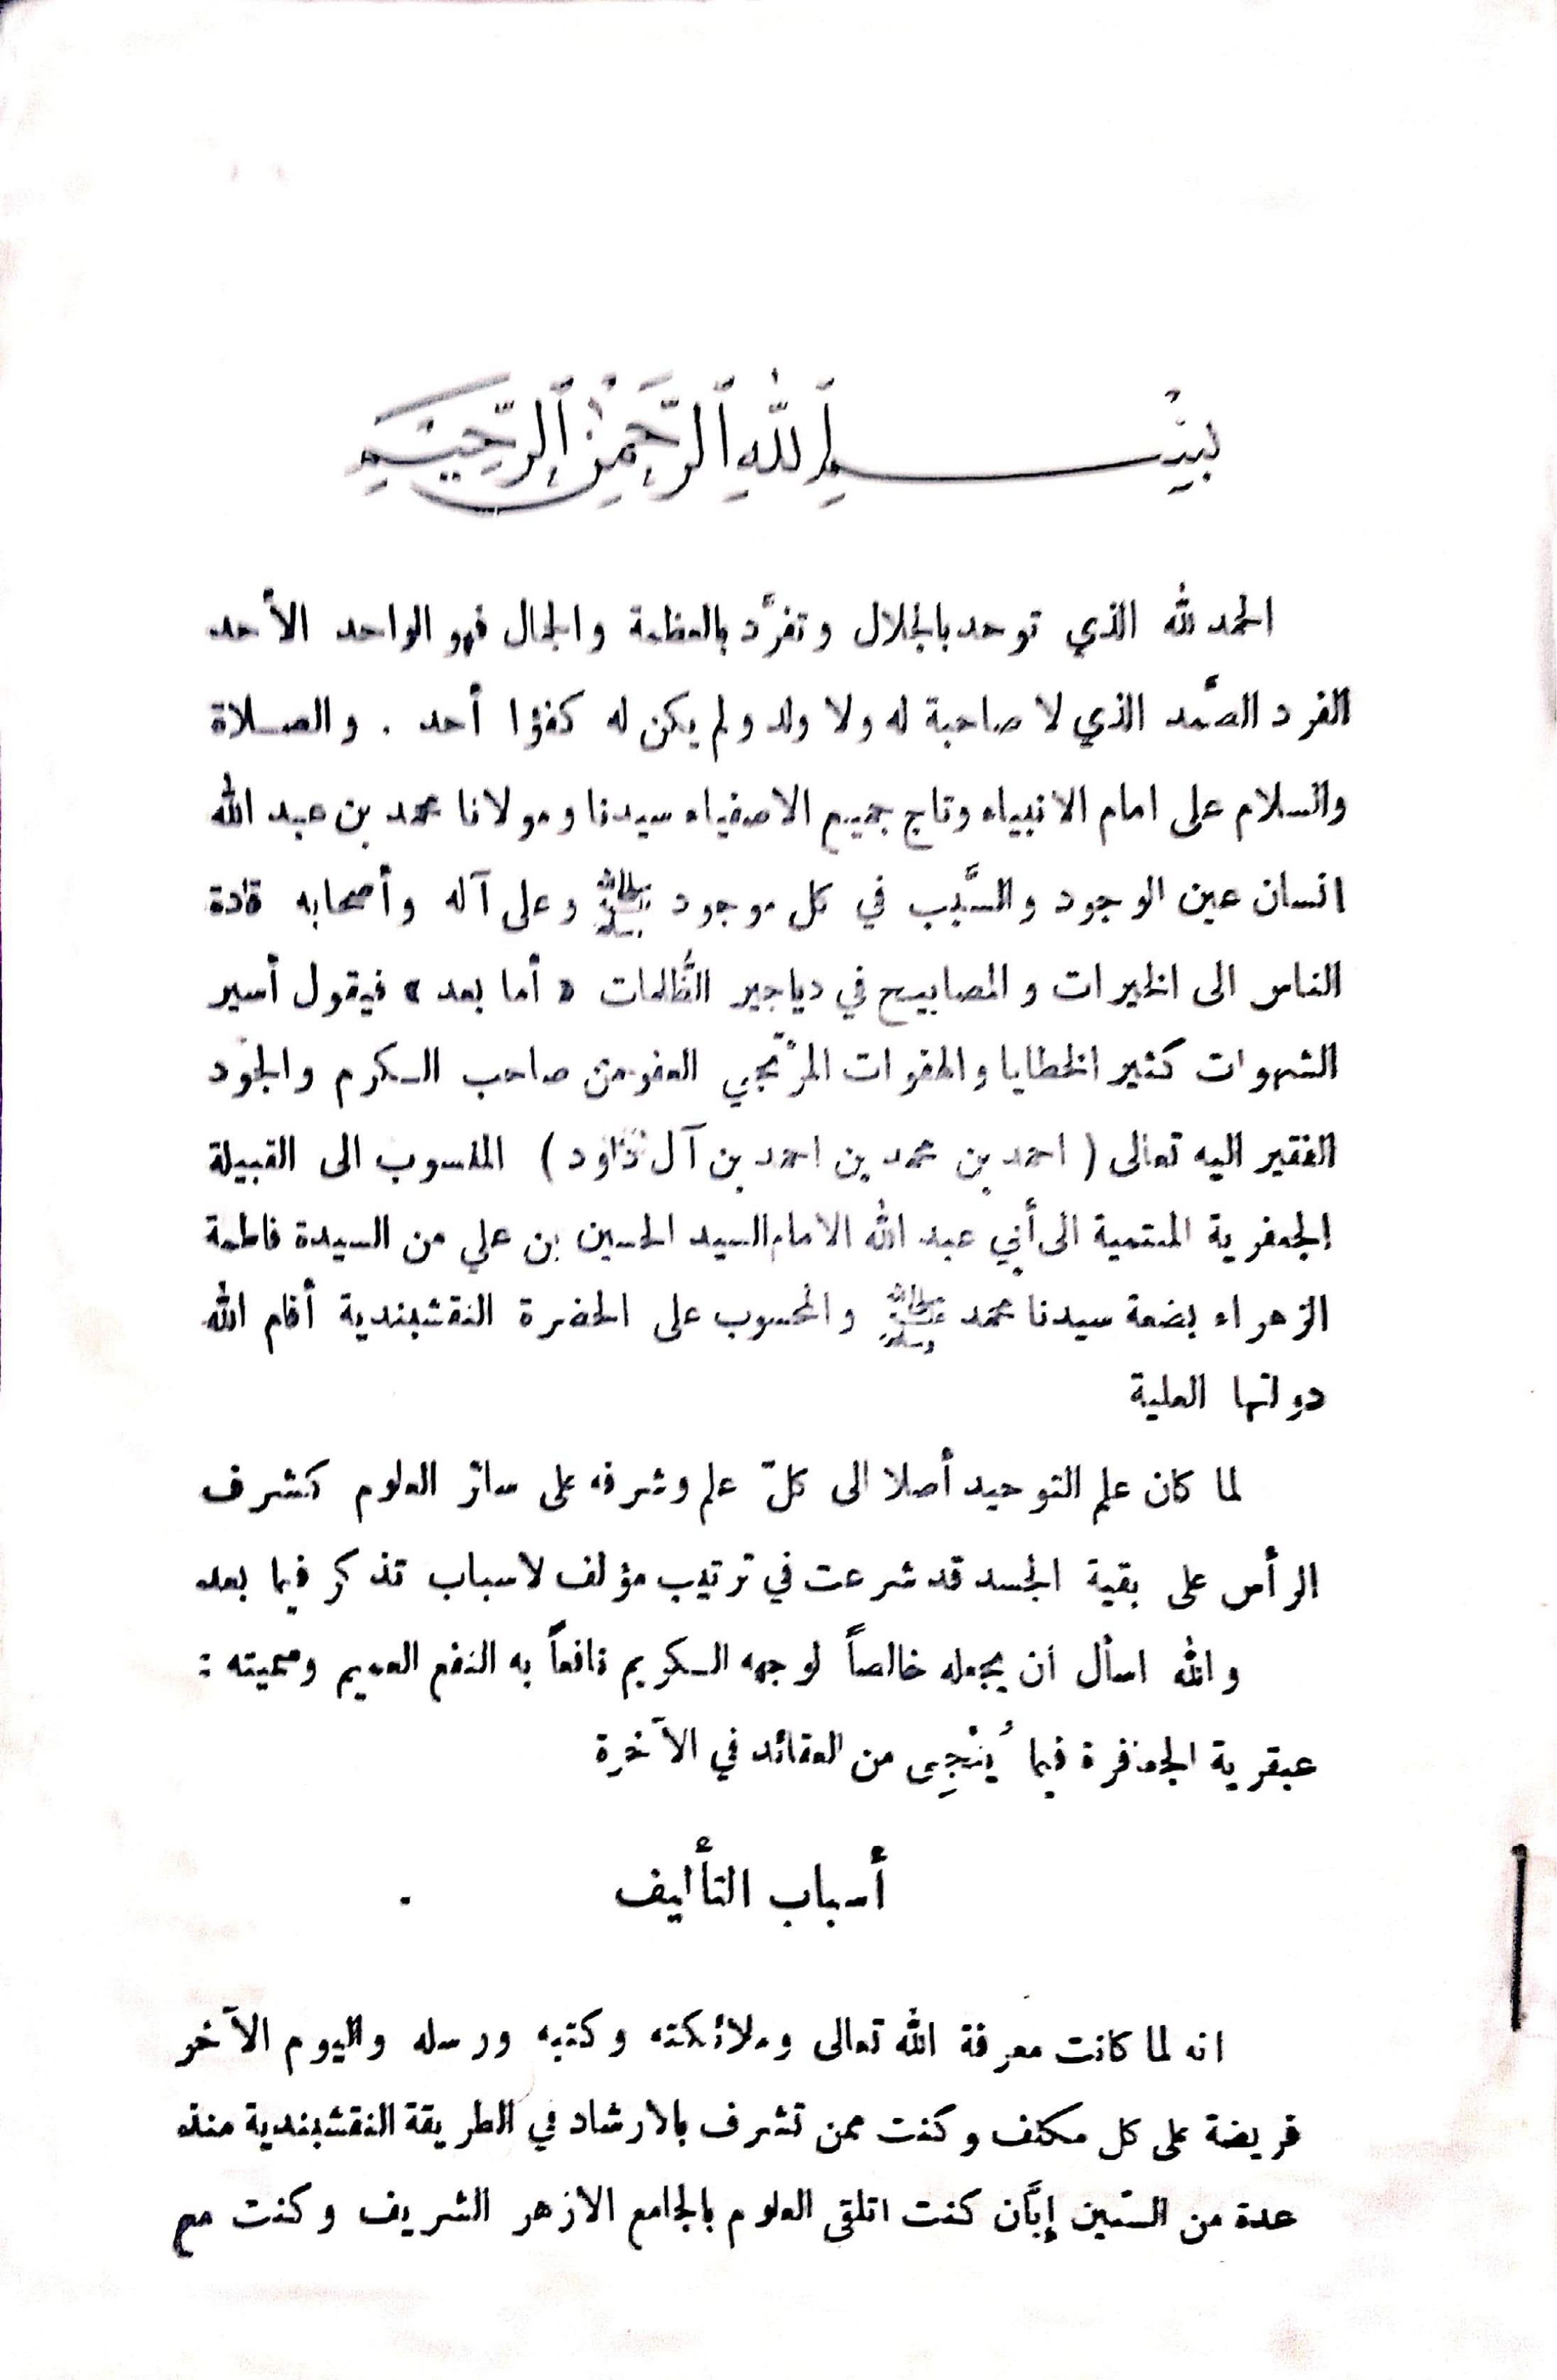 بِسْمِ اللَّهِ الرَّحْمَنِ الرَّحِيمِ
الحمد لله الذي توحد بالجلال وتفرَّد بالعظمة والجمال فهو الواحد الأحد
الفرد الصَّمد الذي لا صاحبة له ولا ولد ولم يكن له كفؤا أحد . والصلاة
والسلام على امام الانبياء وتاج جميع الاصفياء سيدنا ومولانا محمد بن عبد الله
انسان عين الوجود والسَّبب في كل موجود ﷺ وعلى آله وأصحابه قادة
الناس الى الخيرات والمصابيح في دياجير الظُّلمات « أما بعد » فيقول أسير
الشهوات كثير الخطايا والهفوات المرْتجي العفو من صاحب الكرم والجود
الفقير اليه تعالى ( احمد بن محمد بن احمد بن آل داود ) المنسوب الى القبيلة
الجعفرية المنتمية الى أبي عبد الله الامام السيد الحسين بن علي من السيدة فاطمة
الزهراء بضعة سيدنا محمد ﷺ والمحسوب على الحضرة النقشبندية أقام الله
دولتها العلية
لما كان علم التوحيد أصلا الى كلّ علم وشرفه على سائر العلوم كشرف
الرأس على بقية الجسد قد شرعت في ترتيب مؤلف لاسباب تذكر فيما بعد
والله اسأل ان يجعله خالصاً لوجهه الكريم نافعاً به النفع العميم وسميته :
عبقرية الجعافرة فيما يُنْجِى من العقائد في الآخرة
أسباب التأليف
انه لما كانت معرفة الله تعالى وملائكته وكتبه ورسله واليوم الآخر
فريضة على كل مكلف وكنت ممن تشرف بالارشاد في الطريقة النقشبندية منذ
عدة من السنين إبَّان كنت اتلقى العلوم بالجامع الازهر الشريف وكنت مع